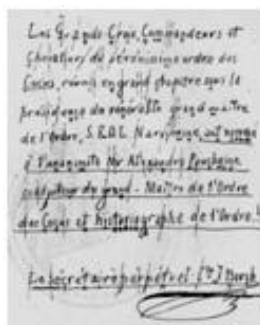 Les Grands-Croix, Commandeurs et
Chevaliers du sérénissime ordre des
Cocus, réunis en grand chapitre sous la
présidence du vénérable grand-maître
de l'Ordre, S.E. D.L. Narychkine, ont nommé
à l'unanimité Mr Alexandre Pouchkine
coadjuteur du grand-Maître de l'Ordre
des Cocus et historiographe de l'Ordre.
Le sécrétaire perpétuel: C^te J. Borch